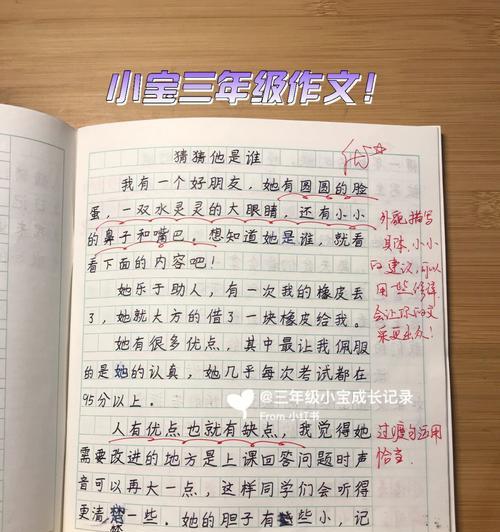 小宝三年级作文！
猜猜他是谁
我有一个好朋友，她有圆圆的脸
蛋，一双水灵灵的大眼睛，还有小小
的鼻子和嘴巴。想知道她是谁，就看
看下面的内容吧！
她乐于助人，有一次我的橡皮丢
了，她就大方的借了一块橡皮给我。
她有很多优点，其中最让我佩服
的是她的认真，她几乎每次考试都在
95分以上。
人有优点也就有缺点，我觉得她
需要改进的地方是上课回答问题时声
音可以再大一点，这样同学们会听得
更清楚一些。她的胆子有些小，记
外貌描写
具体，小小
的建议，可以
用些修辞
会让你的文
采更出众！
过渡句运用
恰当
@三年级小宝成长记录
From 小红书